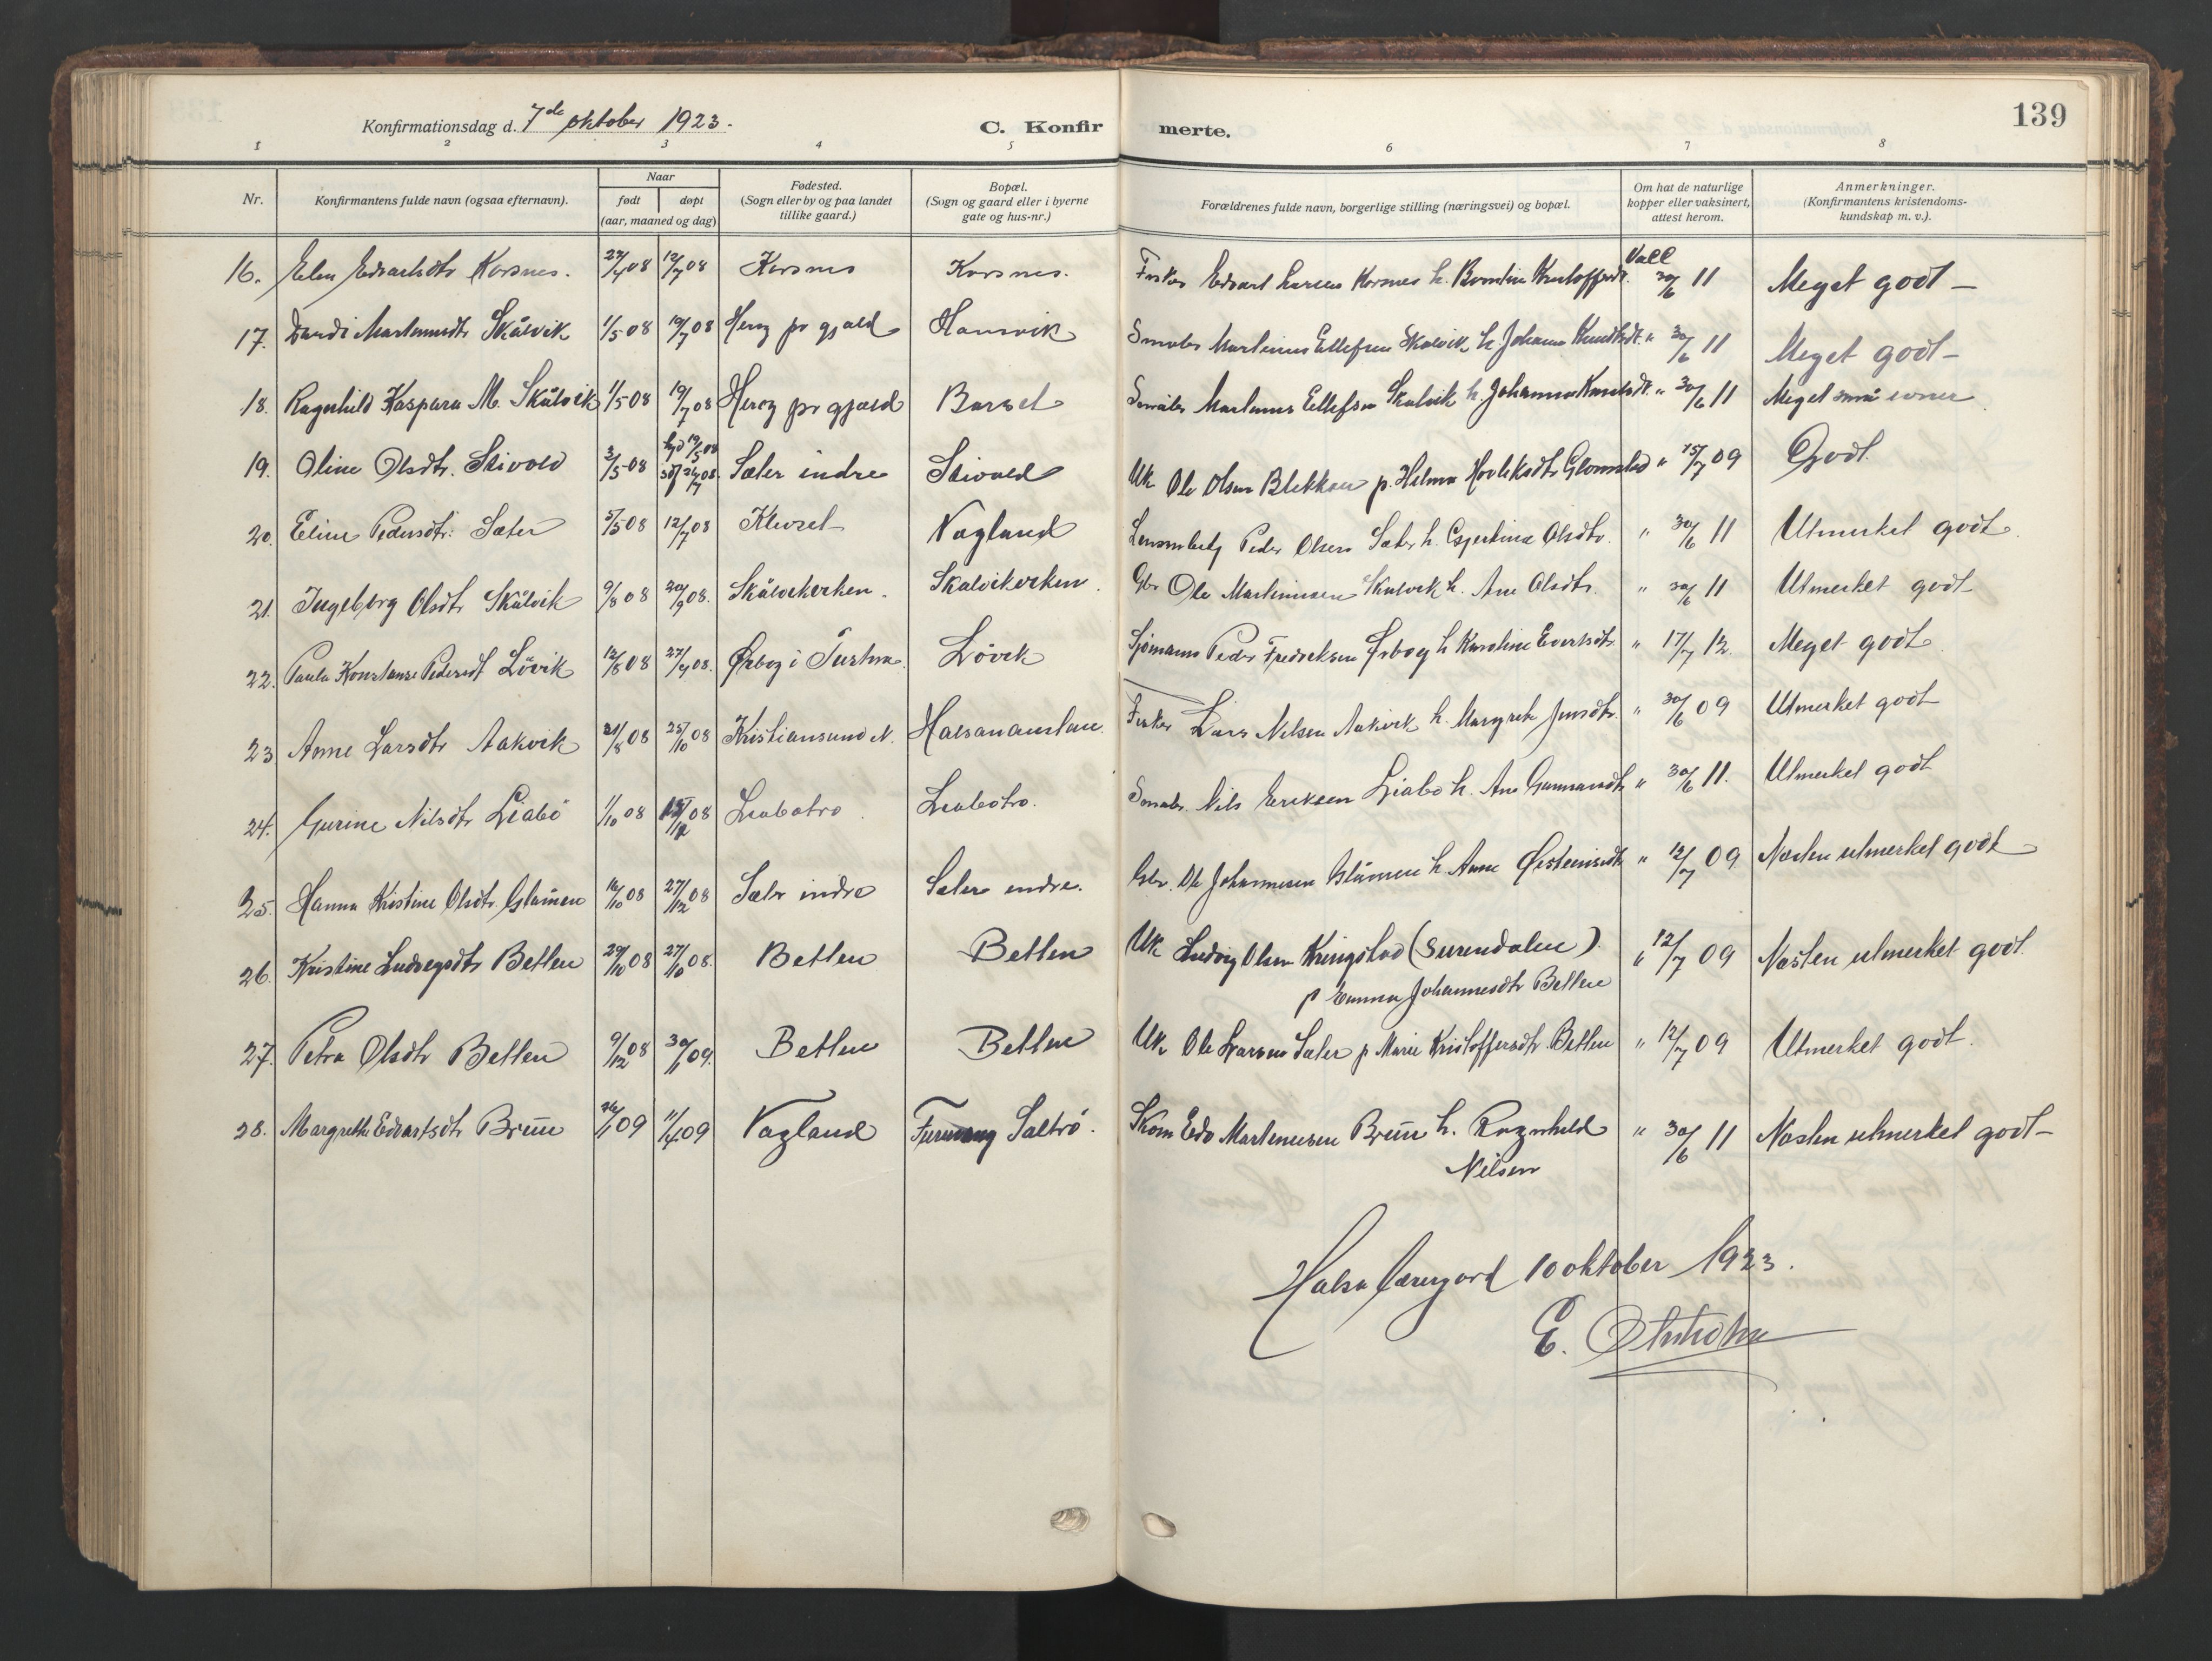 139
Konfirmationsdag d. 7de oktober 1923.
C. Konfir merte.
1 2 3 4 5 6 7 8
Nr.
Konfirmantens fulde navn (ogsaa efternavn).
Naar
født døpt
(aar, maaned og dag)
Fødested.
(Sogn eller by og paa landet
tillike gaard.)
Bopæl.
(Sogn og gaard eller i byerne
gate og hus-nr.)
Forældrenes fulde navn, borgerlige stilling (næringsvei) og bopæl.
Om hat de naturlige
kopper eller vaksinert,
attest herom.
Anmerkninger.
(Konfirmantens kristendoms-
kundskap m. v.).
16. Elen Edvartsdtr Korsnes. 12/7 08 Korsnes Korsnes. Fisker Edvart Larsen Korsnes h. Kristoffersdt. Vall 30/6 11 Meget godt —
17. Skålvik 1/5 08 19/7 08 Herøy pr gjæld Martinus Ellefsen Skalvik h. Johanna Knudtsdt. " 30/6 11 Meget godt —
18. Ragnhild Kaspara M. Skålvik 1/5 08 19/7 08 Herøy pr gjæld Martinus Ellefsen Skalvik h. Johanna Knudtsdt. " 30/6 11 Meget små evner
19. Oline Olsdtr. Stivold 3/5 08 Sæter indre Stivold Uk Ole Olsen Blekken p. Helma Glomstad " 15/7 09 Godt
20. Eline Pedersdtr. Sæter 5/5 08 12/7 08 Klevset Vagland Peder Olsen Sæter h. Olsdtr. " 30/6 11 Utmerket godt.
21. Ingeborg Olsdtr Skålvik 9/8 08 20/9 08. Skålvikviken. Skalvikviken. Gbr Ole Martinusen Skalvik h. Ane Olsdtr. " 30/6 11 Utmerket godt
22. Paula Konstanse Pedersdt Lövik 12/8 08 Ørbog i Tustna Lövik Sjømann Peder Fredriksen Ørbog h Karoline Evertsdtr " 17/7 12. Meget godt
23. Anne Larsdtr Aakvik 21/8 08 25/10 08 Kristiansund N. Halsanaustan. Fisker Lars Nilsen Aakvik h. Margrete Jensdtr. " 30/6 09 Utmerket godt
24. Gurine Nilsdtr Liabö 1/10 08 Liabötrø. Liabötrø. Nils Eriksen Liabö h. Ane Gunnarsdtr " 30/6 11. Utmerket godt
25. Hanna Kristine Olsdtr. Glåmen 16/10 08 27/12 08 Sæter indre Sæter indre. Gbr. Ole Johannesen Glåmen h. Anne Østensdtr " 12/7 09 Næsten utmerket godt
26. Kristine Ludvigsdtr Betten 29/10 08 27/10 08. Betten Betten Uk Ludvig Olsen Kringstad (Surendalen).
p Emma Johannesdtr Betten " 12/7 09 Næsten utmerket godt.
27. Petra Olsdtr Betten 9/12 08 30/1 09. Betten Betten Uk Ole Larsen Sæter p Marie Kristoffersdtr Betten " 12/7 09 Utmerket godt.
28. Margrethe Edvartsdtr Bruun 26/1 09 11/4 09 Vagland Saltrö. Skom Edv Martinusen Bruun h. Ragnhild
Nilsen " 30/6 11 Næsten utmerket godt —
Halsa 10 oktober 1923.
E.